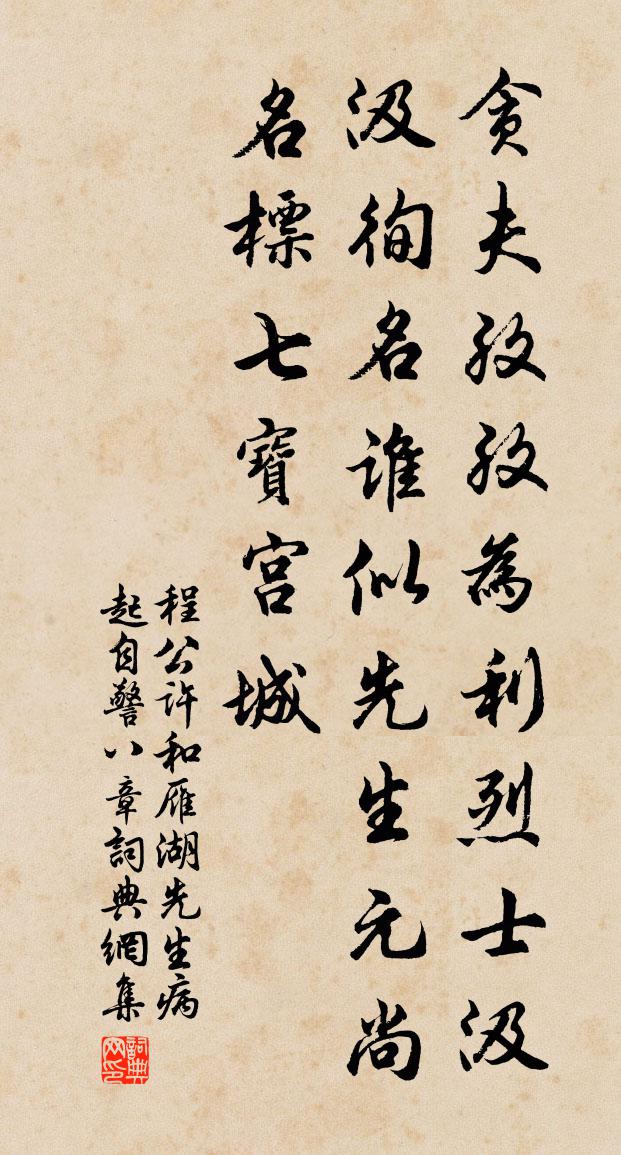 貪夫孜孜為利烈士汲
汲徇名誰似先生元尚
名標七寶宮城
程公許和雁湖先生病
起自警八章詞典網集
詞典网印